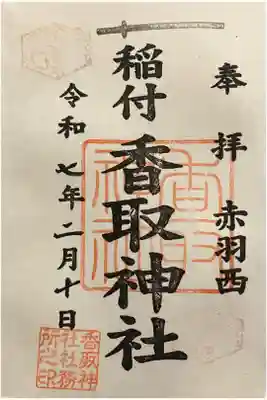 奉拝 赤羽西
稲付
香取神社
令和七年二月十日
香取神
社社務
所之印